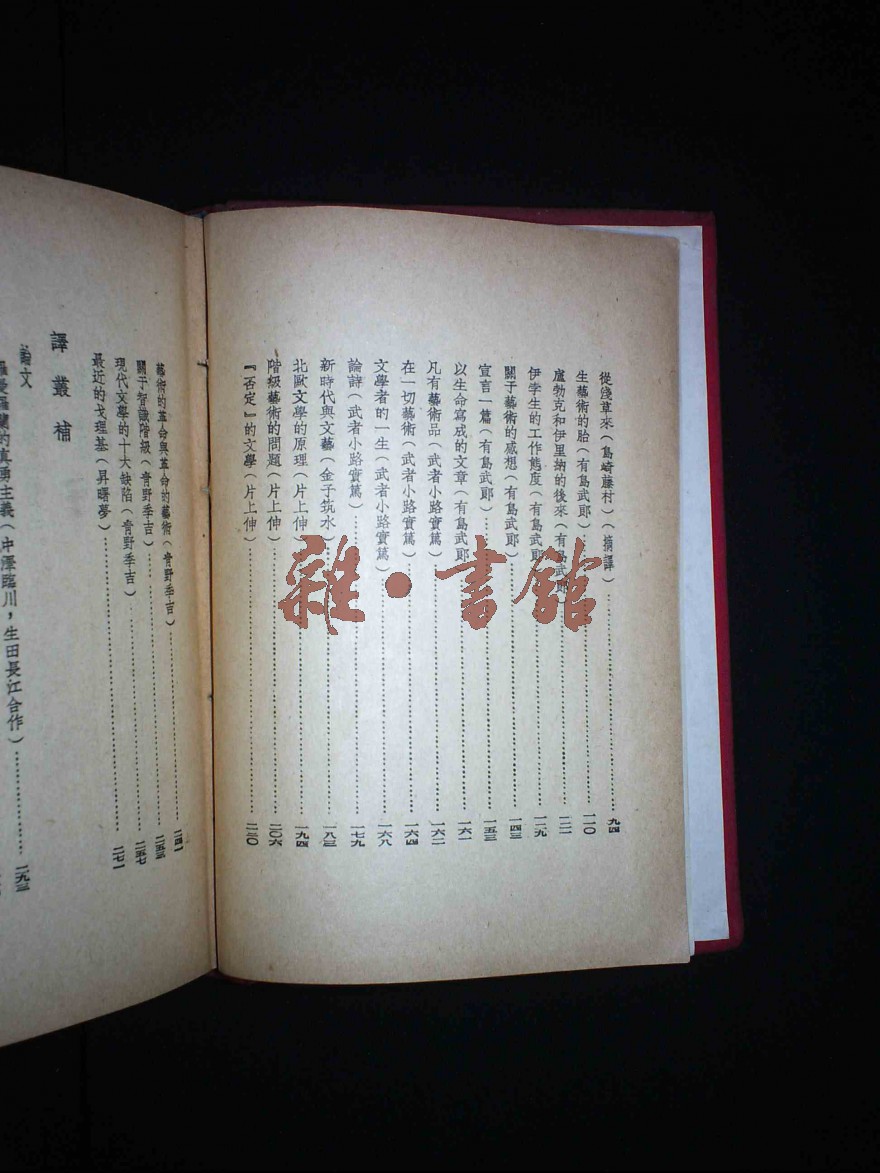 從淺草來（島崎藤村）（摘譯）……九四
生藝術的胎（有島武郎）……一一〇
盧勃克和伊里納的後來（有島武郎）……一二一
伊孛生的工作態度（有島武郎）……一二九
關于藝術的感想（有島武郎）……一四三
宣言一篇（有島武郎）……一五三
以生命寫成的文章（有島武郎）……一六一
凡有藝術品（武者小路實篤）……一六二
在一切藝術（武者小路實篤）……一六四
文學者的一生（武者小路實篤）……一六八
論詩（武者小路實篤）……一七九
新時代與文藝（金子筑水）……一八三
北歐文學的原理（片上伸）……一九四
階級藝術的問題（片上伸）……二〇六
『否定』的文學（片上伸）……二三〇
藝術的革命與革命的藝術（青野季吉）……二四一
關于智識階級（青野季吉）……二五三
現代文學的十大缺陷（青野季吉）……二五七
最近的戈理基（昇曙夢）……二七一
譯叢補
論文
羅曼羅蘭的真勇主義（中澤臨川，生田長江合作）……二九三
雜·書館